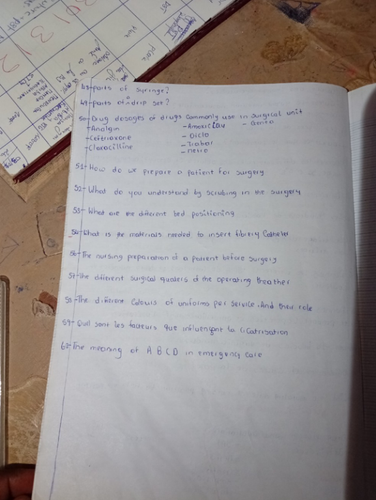 48-parts of syringe?
49-parts of a drip set?
50-Drug dosages of drugs commonly use in surgical unit
-Analgin
-Amoxiclav
-Genta
-Ceftriaxone
-Diclo
-Cloxacilline
-Trabar
-metro
51-How do we prepare a patient for surgery
52-What do you understand by scrubing in the surgery
53-What are the different bed positioning
54-What is the materials needed to insere Catheter
56-The nursing preparation of a patient before surgery
57-The different surgical of the operating theater
58-The different Colours of uniforms per service. And their role
59-Quel sont les facteurs que influencent la cicatrisation
60-The meaning of A B C D in emergency care